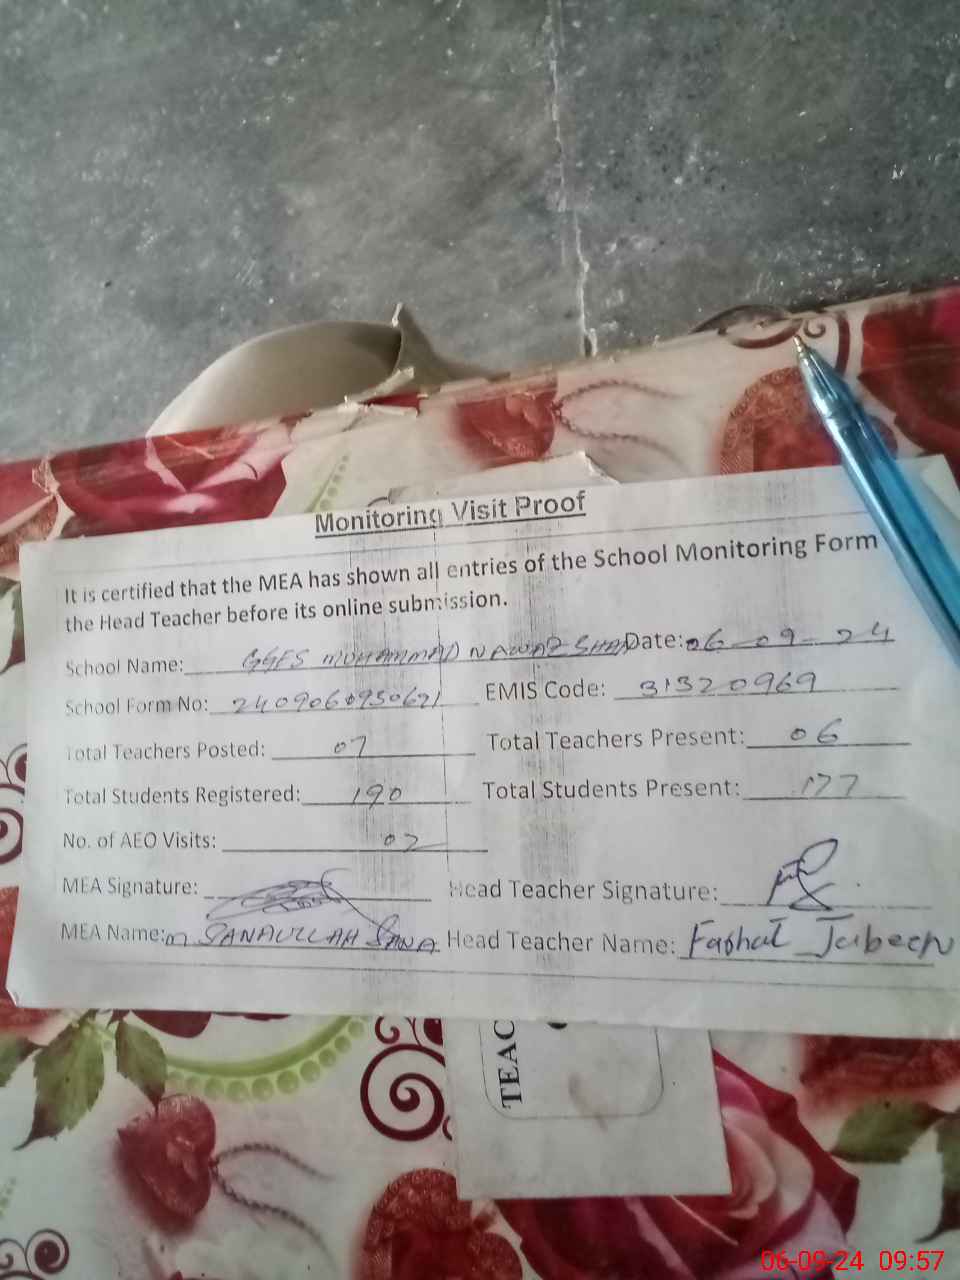 Monitoring Visit Proof
It is certified that the MEA has shown all entries of the School Monitoring Form
the Head Teacher before its online submission.
School Name: GGES MUHAMMAD NAWAZ SHAH Date: 06-09-24
School Form No: 240906095062 EMIS Code: 31320969
Total Teachers Posted: 07 Total Teachers Present: 06
Total Students Registered: 190 Total Students Present: 177
No. of AEO Visits: 02
MEA Signature: Head Teacher Signature:
MEA Name: M SANAULLAH SANA Head Teacher Name: Fashat Jabeen
TEAC
06-09-24 09:57